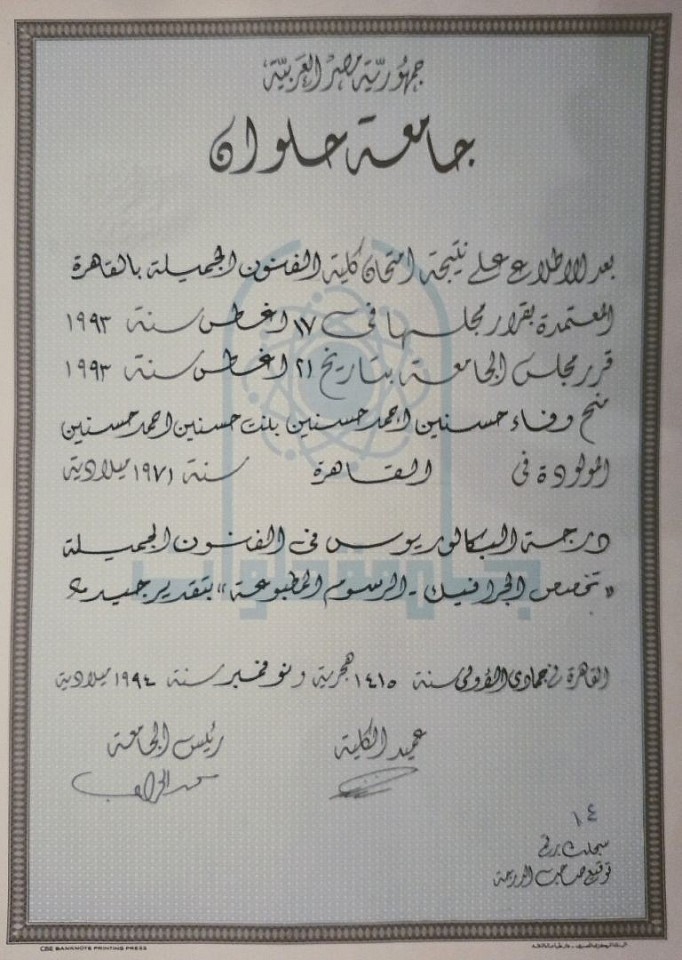 جمهورية مصر العربية
جامعة حلوان
بعد الاطلاع على نتيجة امتحان كلية الفنون الجميلة بالقاهرة
المعتمدة بقرار مجلسها في ١٧ اغسطس سنة ١٩٩٣
قرر مجلس الجامعة بتاريخ ٢١ اغسطس سنة ١٩٩٣
منح وفاء حسنين احمد حسنين بنت حسنين احمد حسنين
المولودة فى القاهرة سنة ١٩٧١ ميلادية
درجة البكالوريوس فى الفنون الجميلة
« تخصص الجرافيك - الرسوم المطبوعة » بتقدير جيد
القاهرة في جمادى الأولى سنة ١٤١٥ هجرية ونوفمبر سنة ١٩٩٤ ميلادية
عميد الكلية رئيس الجامعة
١٤
سجلت برقم
توقيع صاحب الدرجة
CBE BANKNOTE PRINTING PRESS